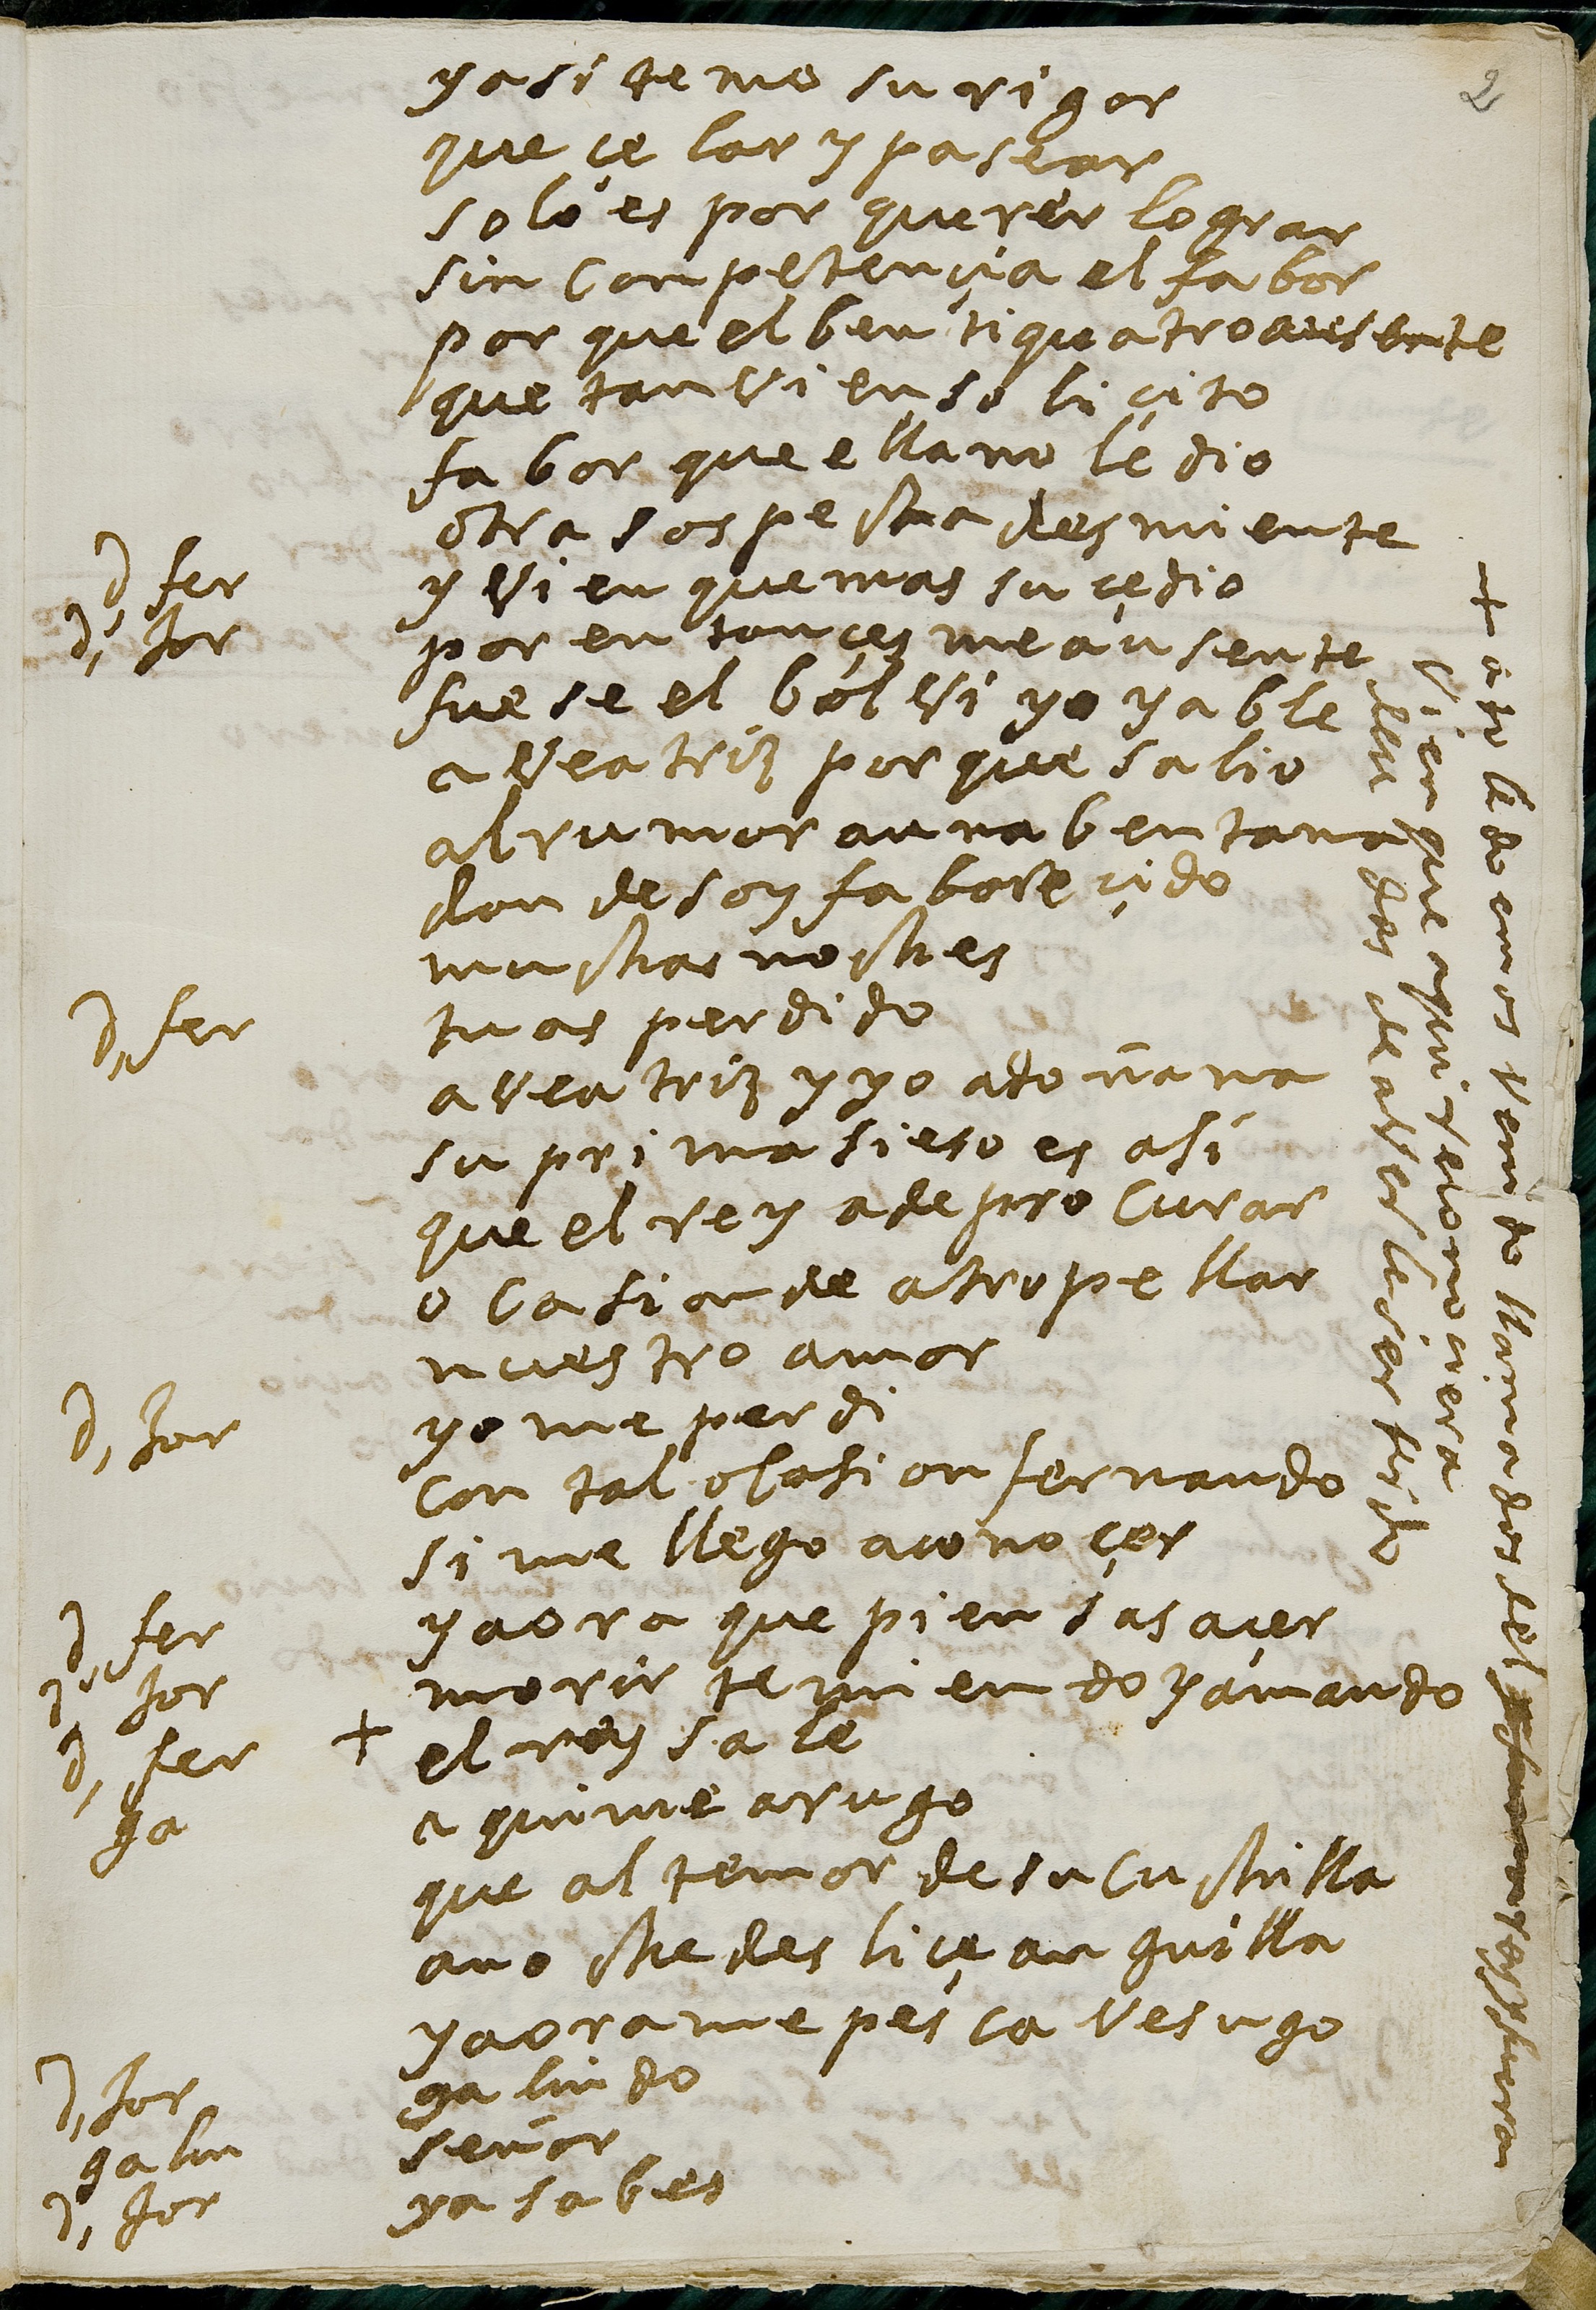 2
yasi teme su rigor
que çelar y pasear
solo es por querer lograr
sin competençia el fabor
por que el bentiquatro ausente
que tanvien soliçito
fabor que ella no le dio
otra sospecha desmiente
d, fer y vien que mas suçedio
d, Jor por entonçes me ausente
fuese el bolvi yo y able
a veatriz porque salio
al rumor a una bentana
donde soy faboreçido
muchas noches
d, fer tu as perdido
a veatriz y yo a doñana
su prima si eso es asi
que el rey a de procurar
ocasion de atropellar
nuestro amor
d, Jor yo me perdi
con tal ocasion fernando
si me llego a conoçer
d, fer y aora que piensas açer
d, Jor morir temiendo y amando
d, fer + el rey sale
ga aqui me arugo
que al temor de su cuchilla
anoche desliçe anguilla
y aora me pesca vesugo
d, Jor galindo
galin señor
d, Jor ya sabes
+ a to le do emos venido llamados del
vien que aqui reconoçiera